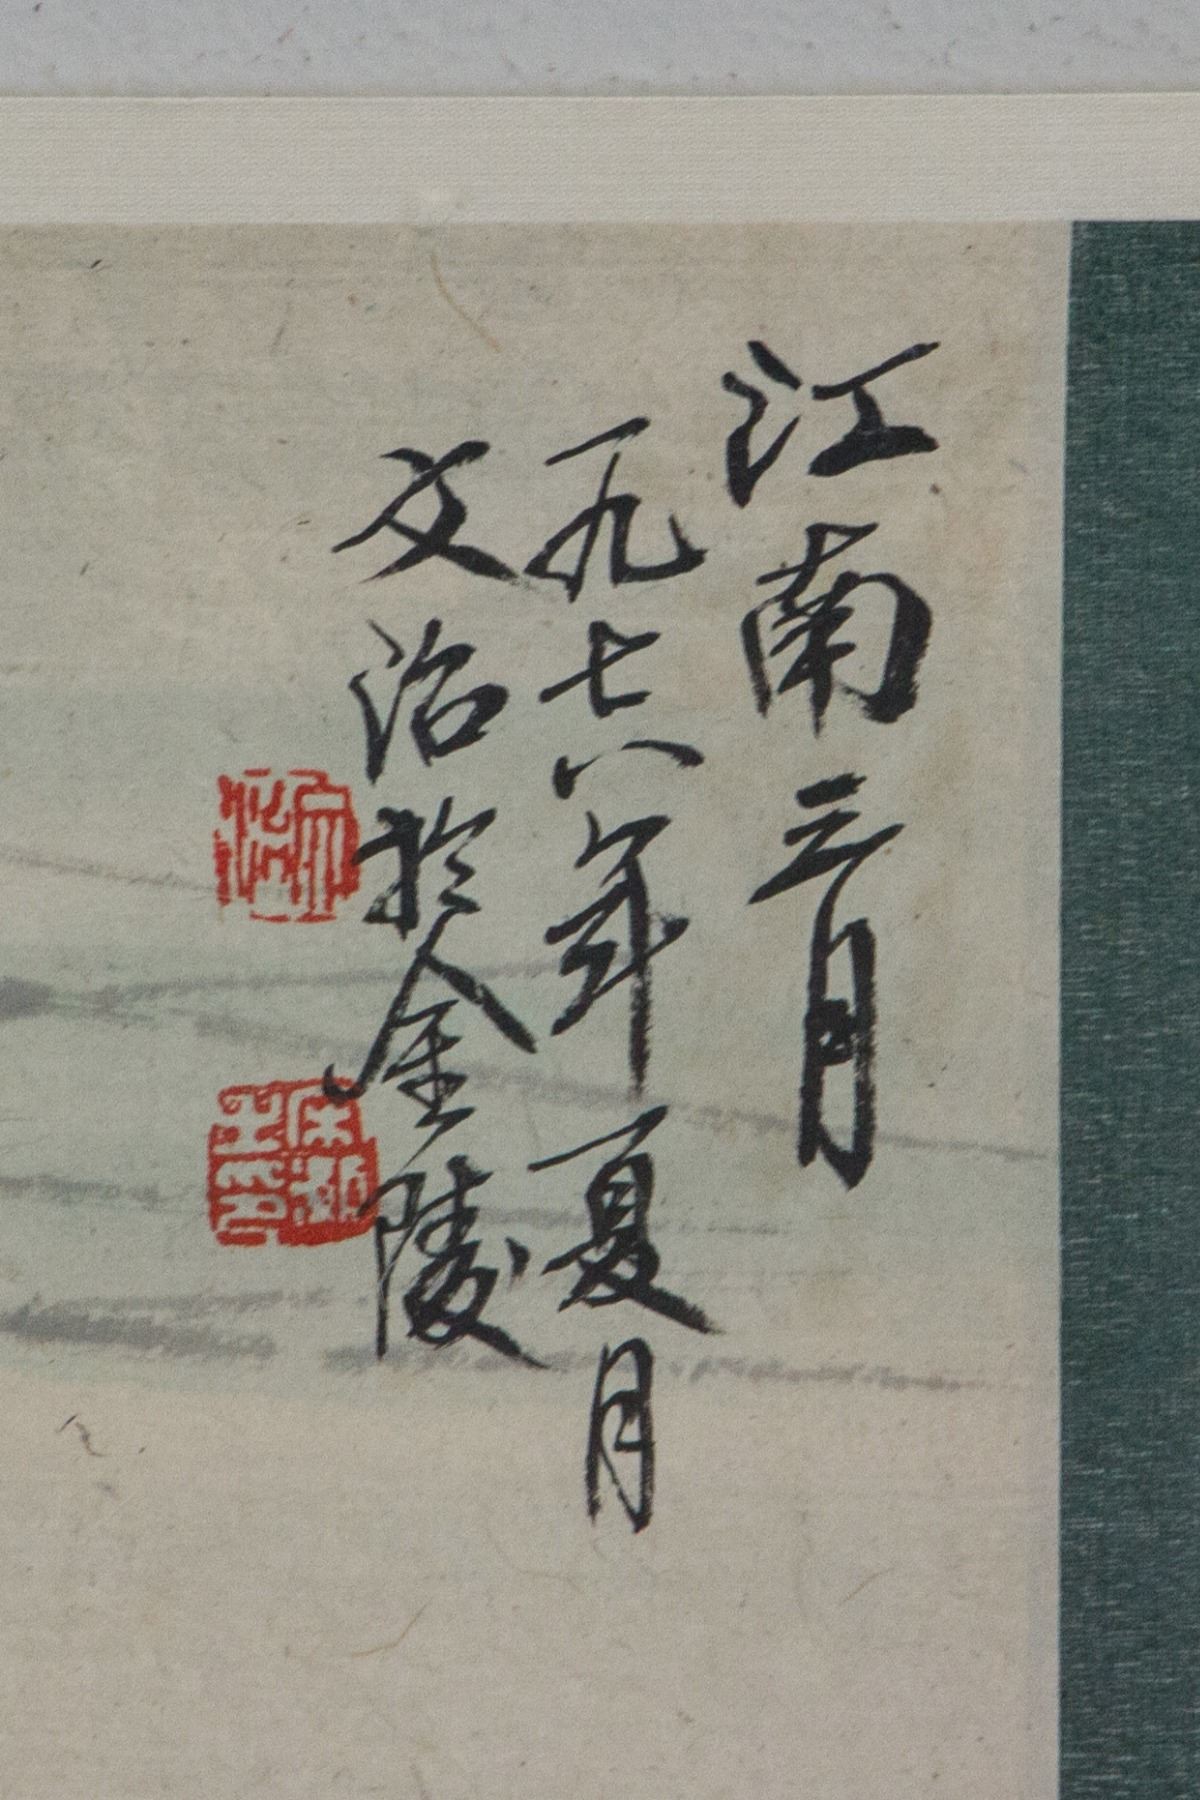 江南三月
一九七八年夏月
文治於金陵